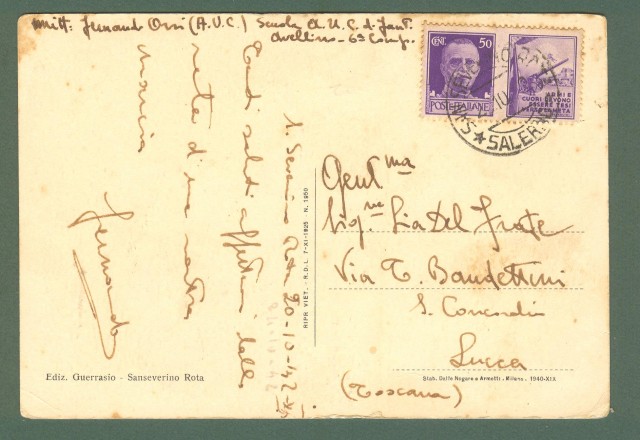 Mitt: Fernando Orsi (A.U.C.) Scuola A.U.C. di Fant.
Avellino - 6ª Comp.
CENT. 50
POSTE ITALIANE
ARMI E
CUORI DEVONO
ESSERE TESI
VERSO LA META
SALERNO
S. Severino Rota 20-10-42
Tanti saldi affettuosi dalla
rete d'una
marcia
Fernando
Gent.ma
Sig.ne Lia Del Frate
Via T. Bandettini
S. Concordio
Lucca
(Toscana)
RIPR. VIET. - R.D.L. 7-XI-1925 N. 1950
Ediz. Guerrasio - Sanseverino Rota
Stab. Dalle Nogare e Armetti - Milano - 1940-XIX